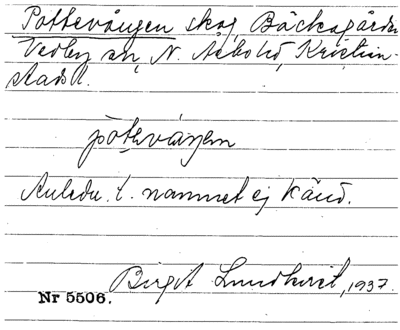 Pottevången skog, Bäckagården
Vedby sn, N. Åsbo hd, Kristian-
stads l.
påtevåŋen
Anledn. t. namnet ej känd.
Birgit Lundkvist, 1937.
Nr 5506.